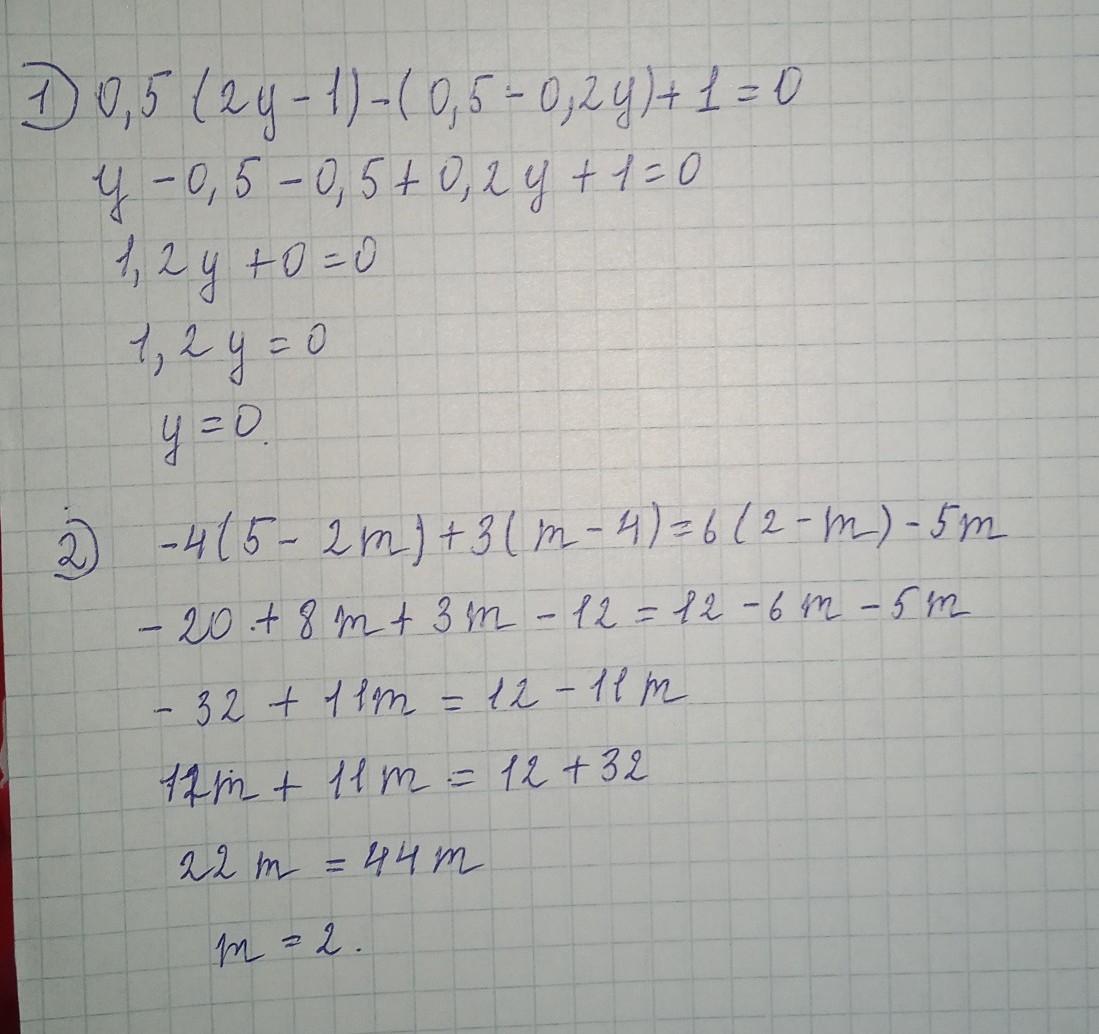 1) 0,5 (2y - 1) - (0,5 - 0,2y) + 1 = 0
y - 0,5 - 0,5 + 0,2y + 1 = 0
1,2y + 0 = 0
1,2y = 0
y = 0.
2) -4(5 - 2m) + 3(m - 4) = 6(2 - m) - 5m
- 20 + 8m + 3m - 12 = 12 - 6m - 5m
- 32 + 11m = 12 - 11m
11m + 11m = 12 + 32
22m = 44m
m = 2.